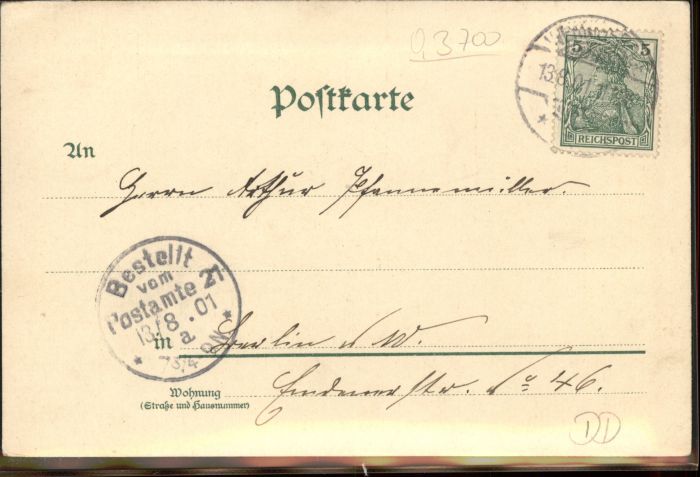 0,3700
5 5
13.8.01
REICHSPOST
Postkarte
An
Herrn Arthur Pfannemüller.
Bestellt
vom
Postamte 21
13/8.01
a
7 3/4 N
in Berlin N. W.
Wohnung
(Straße und Hausnummer)
Emdenerstr. No 46.
DD